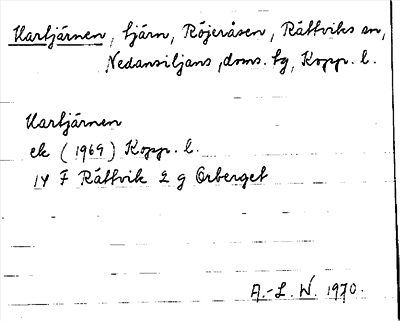 Kartjärnen, tjärn, Röjeråsen, Rättviks sn,
Nedansiljans, doms. tg, Kopp. l.
Kartjärnen
ek (1969) Kopp. l.
14 F Rättvik 2 g Orberget
A.-L. W. 1970.